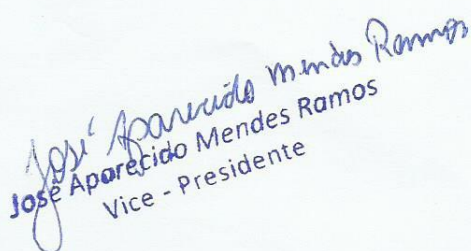 José Aparecido Mendes Ramos
José Aparecido Mendes Ramos
Vice - Presidente